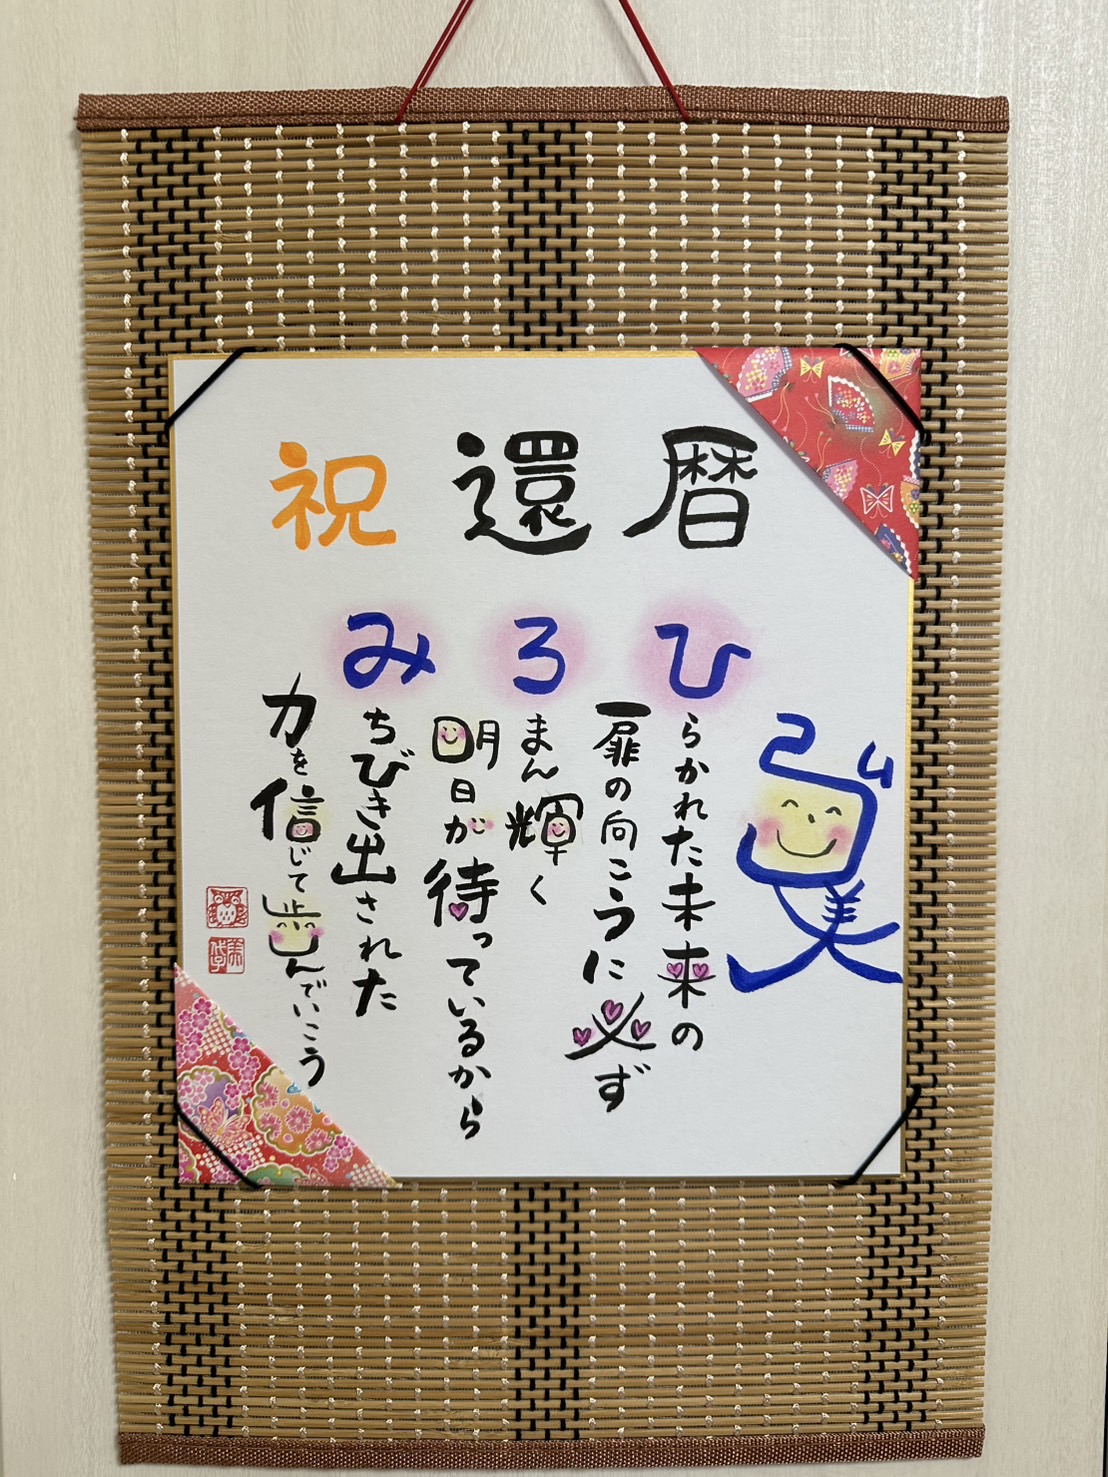 祝 還暦
弘美
ひらかれた未来の
扉の向こうに必ず
ろまん輝く
明日が待っているから
みちびき出された
力を信じて歩んでいこう